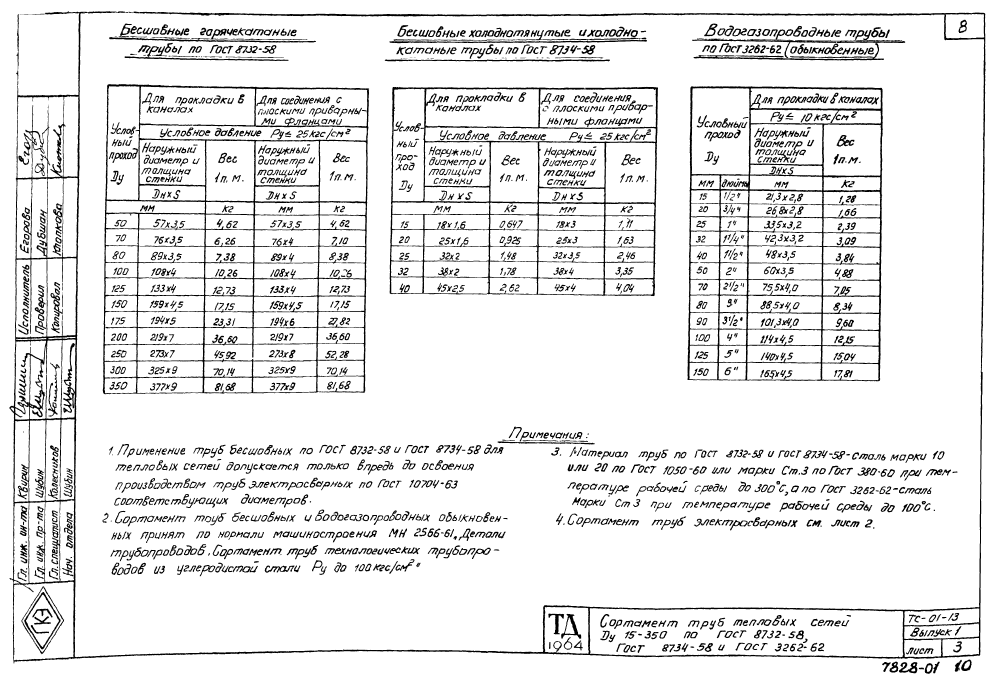 8
Бесшовные горячекатаные
трубы по ГОСТ 8732-58
Услов-
ный
проход
Dу
Для прокладки в
каналах
Для соединения с
плоскими приварны-
ми фланцами
Условное давление Pу≤ 25 кгс/см²
Наружный
диаметр и
толщина
стенки
Вес
1 п. м.
Наружный
диаметр и
толщина
стенки
Вес
1 п. м.
Dн x S
Dн x S
мм кг мм кг
50 57x3,5 4,62 57x3,5 4,62
70 76x3,5 6,26 76x4 7,10
80 89x3,5 7,38 89x4 8,38
100 108x4 10,26 108x4 10,26
125 133x4 12,73 133x4 12,73
150 159x4,5 17,15 159x4,5 17,15
175 194x5 23,31 194x6 27,82
200 219x7 36,60 219x7 36,60
250 273x7 45,92 273x8 52,28
300 325x9 70,14 325x9 70,14
350 377x9 81,68 377x9 81,68
Бесшовные холоднотянутые и холодно-
катаные трубы по ГОСТ 8734-58
Услов-
ный
про-
ход
Dу
Для прокладки в
каналах
Для соединения
с плоскими привар-
ными фланцами
Условное давление Pу≤ 25 кгс/см²
Наружный
диаметр и
толщина
стенки
Вес
1 п. м.
Наружный
диаметр и
толщина
стенки
Вес
1 п. м.
Dн x S
Dн x S
мм кг мм кг
15 18x1,6 0,647 18x3 1,11
20 25x1,6 0,925 25x3 1,63
25 32x2 1,48 32x3,5 2,46
32 38x2 1,78 38x4 3,35
40 45x2,5 2,62 45x4 4,04
Водогазопроводные трубы
по ГОСТ 3262-62 (обыкновенные)
Условный
проход
Dу
Для прокладки в каналах
Pу ≤ 10 кгс/см
Наружный
диаметр и
толщина
стенки
Вес
1 п. м.
Dн x S
мм дюймы мм кг
15 1/2" 21,3x2,8 1,28
20 3/4" 26,8x2,8 1,66
25 1" 33,5x3,2 2,39
32 1 1/4" 42,3x3,2 3,09
40 1 1/2" 48x3,5 3,84
50 2" 60x3,5 4,88
70 2 1/2" 75,5x4,0 7,05
80 3" 88,5x4,0 8,34
90 3 1/2" 101,3x4,0 9,60
100 4" 114x4,5 12,15
125 5" 140x4,5 15,04
150 6" 165x4,5 17,81
Примечания:
1. Применение труб бесшовных по ГОСТ 8732-58 и ГОСТ 8734-58 для
тепловых сетей допускается только впредь до освоения
производством труб электросварных по ГОСТ 10704-63
соответствующих диаметров.
2. Сортамент труб бесшовных и водогазопроводных обыкновен-
ных принят по нормали машиностроения МН 2566-61 „Детали
трубопроводов. Сортамент труб технологических трубопро-
водов из углеродистой стали Pу до 100 кгс/см²"
3. Материал труб по ГОСТ 8732-58 и ГОСТ 8734-58-сталь марки 10
или 20 по ГОСТ 1050-60 или марки Ст.3 по ГОСТ 380-60 при тем-
пературе рабочей среды до 300°С, а по ГОСТ 3262-62-сталь
марки Ст 3 при температуре рабочей среды до 100°С.
4. Сортамент труб электросварных см. лист 2.
Исполнитель Егорова
Проверил Дубшан
Копировал Клопкова
Гл. инж. ин-та
Гл. инж. пр-та Шубин
Гл. специалист Колесников
Нач. отдела Шубин
ТД
1964
Сортамент труб тепловых сетей
Dу 15-350 по ГОСТ 8732-58,
ГОСТ 8734-58 и ГОСТ 3262-62
ТС-01-13
Выпуск 1
лист 3
7828-01 10